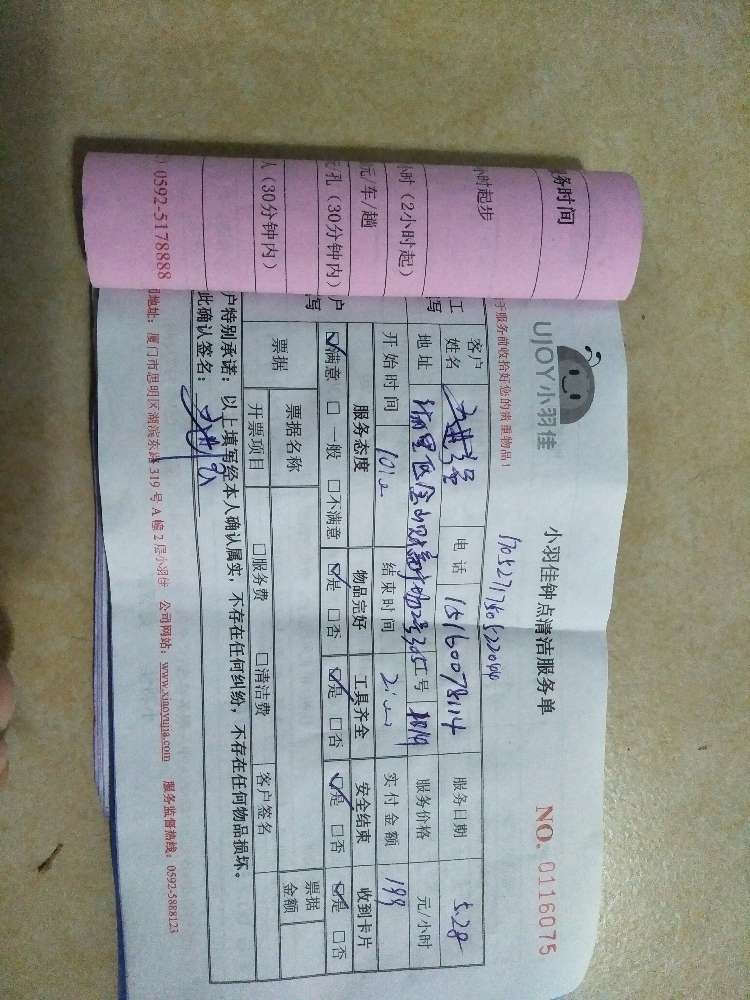 务时间
小时起步
小时（2小时起）
元/车/趟
孔（30分钟内）
（30分钟内）
0592-5178888
UJOY小羽佳
小羽佳钟点清洁服务单
NO. 0116075
守服务前收拾好您的贵重物品！
客户姓名 电话 15160078114 服务日期 5.28
地址 工号 服务价格 元/小时
开始时间 结束时间 实付金额 199
服务态度 物品完好 工具齐全 安全结束 收到卡片
☑满意 □一般 □不满意 ☑是 □否 ☑是 □否 ☑是 □否 ☑是 □否
票据 票据名称 票据金额
开票项目 □服务费 □清洁费 客户签名
户特别承诺：以上填写经本人确认属实，不存在任何纠纷，不存在任何物品损坏。
此确认签名：
司地址：厦门市思明区湖滨东路319号A幢2层小羽佳 公司网站：www.xiaoyujia.com 服务监督热线：0592-5888123